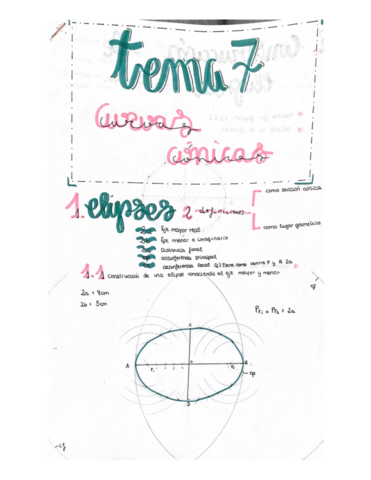 tema 7
curvas
cónicas
1. elipses 2 definiciones
como sección cónica
como lugar geométrico
Eje mayor real
Eje menor o imaginario
Distancia focal
circunferencia principal
circunferencia focal (c) Tiene como centro F y R 2a
1.1 construcción de una elipse conociendo el eje mayor y menor
cf
2a = 8cm
2b = 5cm
Pr₁ + Pr₂ = 2a
C
A
B
cp
D
cf